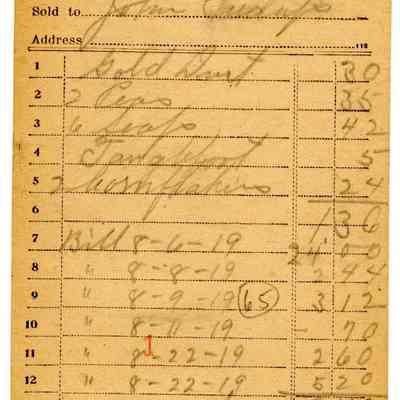 Sold to John
Address
1 Gold Dust 30
2 2 Peas 35
3 6 Soaps 42
4 5
5 2 Corn flakes 24
6 1 36
7 Bill 8-6-19 24 00
8 " 8-8-19 2 44
9 " 8-9-19 65 3 12
10 " 8-11-19 70
11 " 8-22-19 2 60
12 " 8-22-19 5 20